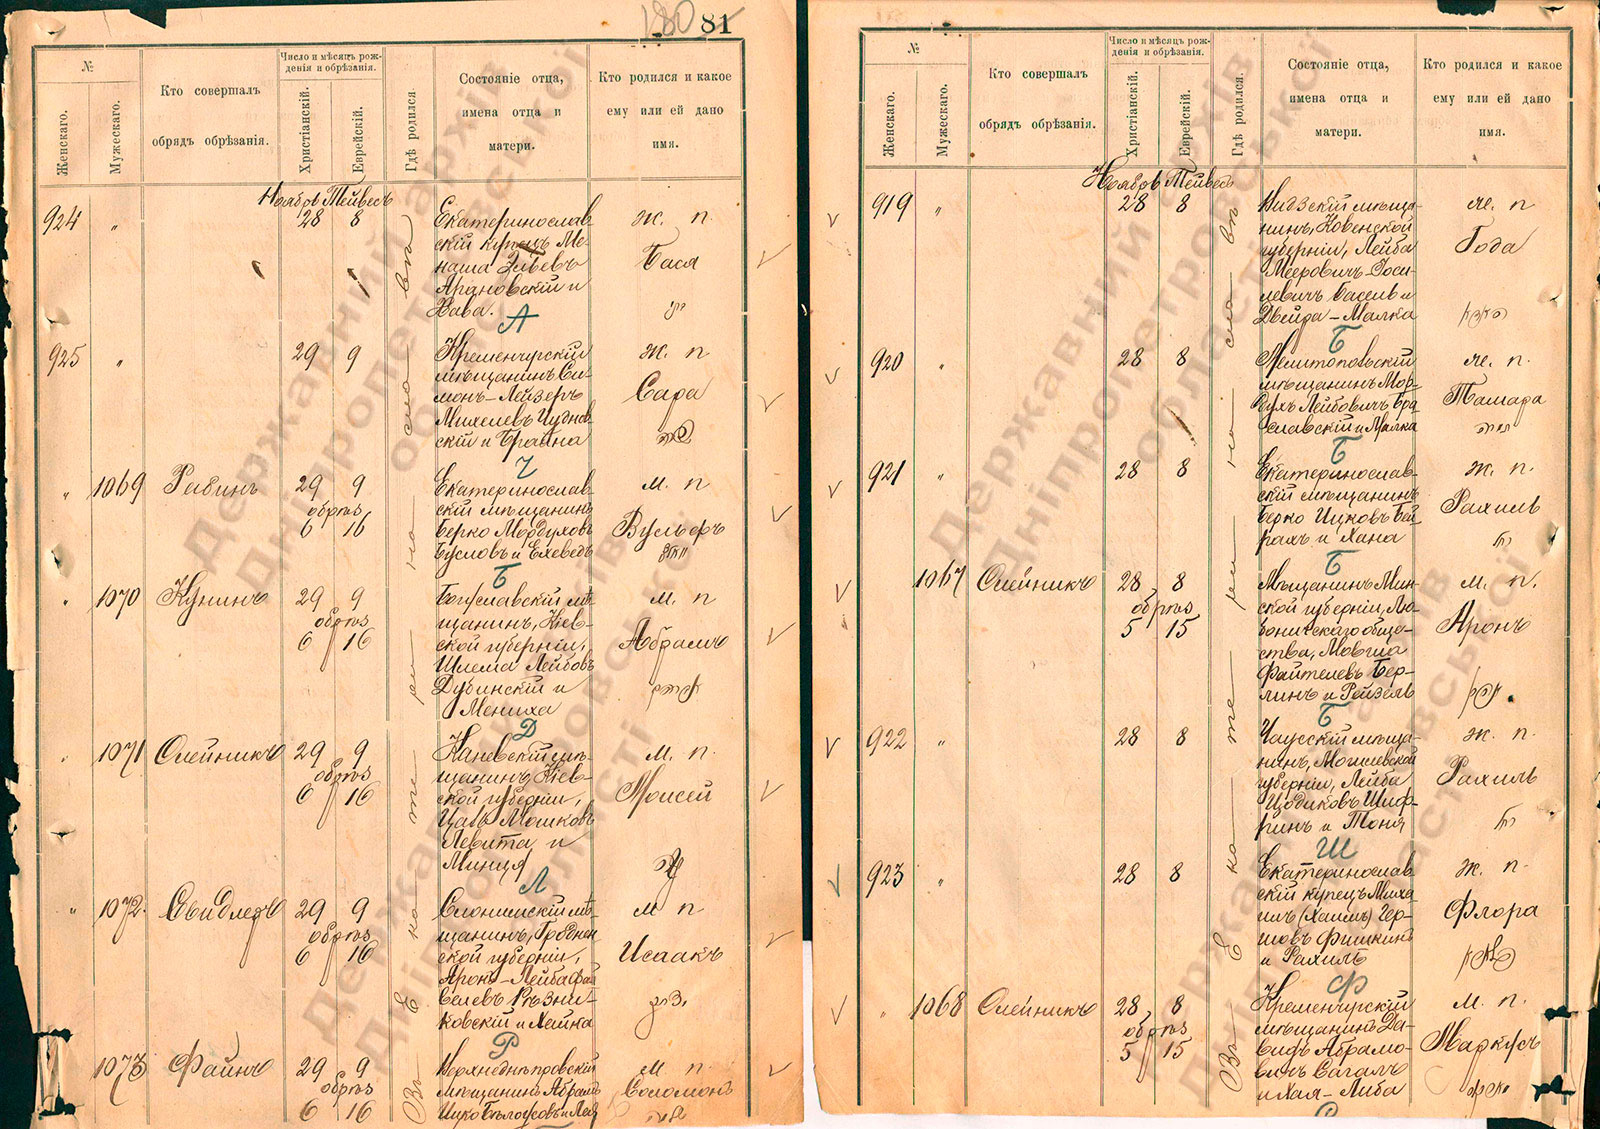 180 81
№
Женскаго.
Мужескаго.
Кто совершалъ
обрядъ обрѣзанія.
Число и мѣсяцъ рож-
денія и обрѣзанія.
Христіанскій.
Еврейскій.
Гдѣ родился
Состояніе отца,
имена отца и
матери.
Кто родился и какое
ему или ей дано
имя.
Ноябр Тейвесъ
924 " 28 8
Екатеринослав
скій купецъ Ме-
наша
и
Хава.
ж. п.
Бася
А
925 " 29 9
Кременчугскій
мѣщанинъ Си-
монъ-Лейзеръ
Михелевъ Чуднов
скій и Брайна
ж. п
Сара
Ч
" 1069 Рабинъ 29 9
обрѣз
6 16
Екатеринослав
скій мѣщанинъ
Берко Мордуховъ
Бусловъ и Ехеведъ
м. п
Вульфъ
Б
" 1070 Кунинъ 29 9
обрѣз
6 16
Богуславскій мѣ
щанинъ, Кіев-
ской губерніи,
Шлема Лейбовъ
Дубинскій и
Мениха
м. п
Абрамъ
Д
" 1071 Олейникъ 29 9
обрѣз
6 16
Каневскій мѣ-
щанинъ, Кіев-
ской губерніи,
Мошковъ
Левита и
м. п.
Моисей
Л
" 1072 Свидлеръ 29 9
обрѣз
6 16
Слонимскій мѣ-
щанинъ, Гроднен
ской губерніи,
Аронъ-Лейба Фай
велевъ Рѣзни-
ковскій и Хейка
м п
Исаакъ
Р
1073 Файнъ 29 9
обрѣз
6 16
Верхнеднѣпровскій
мѣщанинъ Абрамъ
Ицко Бѣлоусовъ и Лея
м п
Соломонъ
Въ Екатеринославѣ
№
Женскаго.
Мужескаго.
Кто совершалъ
обрядъ обрѣзанія.
Число и мѣсяцъ рож-
денія и обрѣзанія.
Христіанскій.
Еврейскій.
Гдѣ родился.
Состояніе отца,
имена отца и
матери.
Кто родился и какое
ему или ей дано
имя.
Ноябр Тейвесъ
919 " 28 8
Видзскій мѣща-
нинъ, Ковенской
губерніи, Лейба
Мееровичъ-Госи-
левичъ Басель и
Двейра-Малка
ж. п
Года
Б
920 " 28 8
Мелитопольскій
мѣщанинъ Мор-
духъ Лейбовичъ Бра-
славскій и Малка
ж. п.
Тамара
Б
921 " 28 8
Екатеринослав-
скій мѣщанинъ
Берко Ицковъ Бей-
рахъ и Хана
ж. п.
Рахиль
Б
1067 Олейникъ 28 8
обрѣз
5 15
Мѣщанинъ Мин-
ской губерніи, Лю-
боничскаго обще-
ства, Мовша
Файтелевъ Бер-
линъ и Рейзель
м. п.
Аронъ
Б
922 " 28 8
Чаусскій мѣща-
нинъ, Могилевской
губерніи, Лейба
Цодиковъ Шиф-
ринъ и Тоня
ж. п.
Рахиль
Ш
923 " 28 8
Екатеринослав
скій купецъ Миха-
илъ (Хаимъ) Гер-
шовъ Фишкинъ
и Рахиль
ж. п.
Флора
Ф
" 1068 Олейникъ 28 8
обрѣз
5 15
Кременчугскій
мѣщанинъ Да-
видъ Абрамо-
вичъ Сагалъ
и Хая-Либа
м. п.
Маркусъ
С
Въ Екатеринославѣ
Державний архів
Дніпропетровської
області